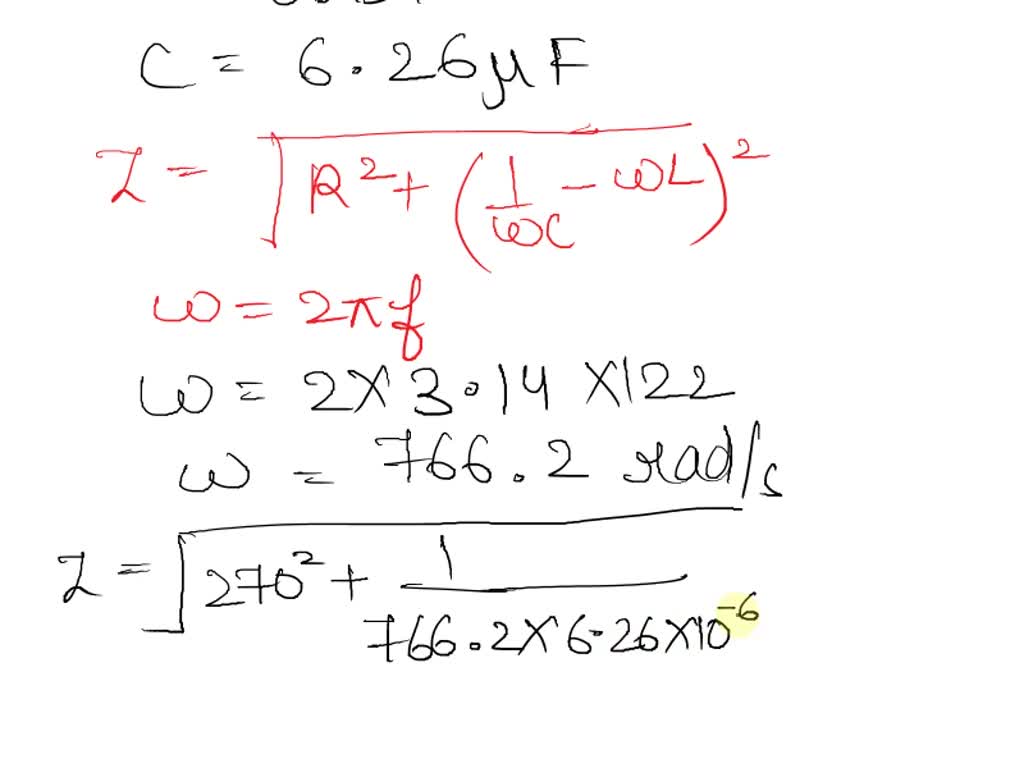 C = 6.26μF
Z = √R² + (1/ωC - ωL)²
ω = 2πf
ω = 2X3.14X122
ω = 766.2 rad/s
Z = √270² + 1/766.2X6.26X10⁻⁶